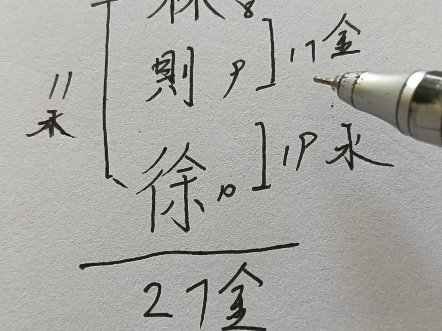 8
則 9 17金
11
木
徐 10 19水
27金